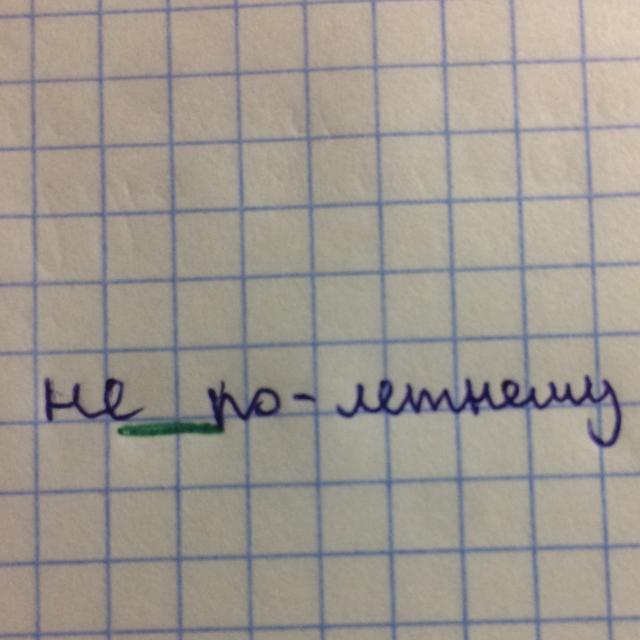 не по-летнему